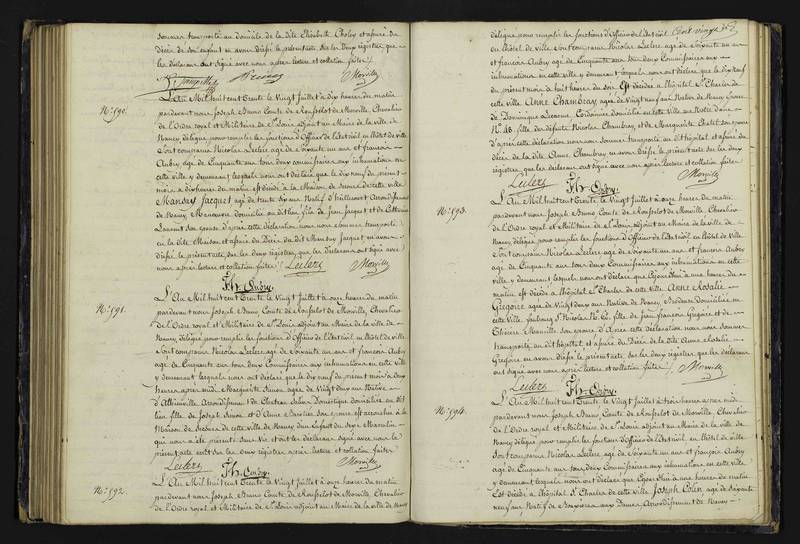 sommes transporté au domicile de la dite Elisabeth Choley et assuré du
décès de son enfant en avons dressé le présent acte sur les deux registres que
les déclarans ont signé avec nous après lecture et collation faites
Morville
N.º 190.
L'An Mil huit cent Trente le Vingt Juillet à dix heures du matin
pardevant nous Joseph Bruno Comte de Rousselot de Morville, Chevalier
de l'Ordre royal et Militaire de S.t Louis adjoint au Maire de la ville de
Nancy délégué pour remplir les fonctions d'Officier de l'Etat civil en l'hôtel de ville
sont comparus Nicolas Leclerc agé de soixante un ans et françois
Aubry agé de Cinquante un ans tous deux commissaires aux inhumations en
cette ville y demeurant lesquels nous ont déclaré que le dix neuf du présent
mois à dix heures du matin est décédé à la Maison de Secours de cette ville
Mansuy Jacquet agé de trente six ans Natif d' Arrondissement
de Nancy Manoeuvre domicilié au dit lieu fils de Jean Jacquet et de Catherine
Laurent son épouse d'après cette déclaration nous nous sommes transporté
en la dite Maison et assuré du Décès du dit Mansuy Jacquet en avons
dressé le présent acte sur les deux registres que les déclarans ont signé avec
nous après lecture et collation faites Leclerc Morville
Fh. Aubry.
N.º 191.
L'An Mil huit cent Trente le Vingt Juillet à onze heures du matin
pardevant nous Joseph Bruno Comte de Rousselot de Morville, Chevalier
de l'Ordre royal et Militaire de S.t Louis adjoint au Maire de la ville de
Nancy délégué pour remplir les fonctions d'Officier de l'Etat civil en l'hôtel de ville
sont comparus Nicolas Leclerc agé de Soixante un ans et françois Aubry
agé de Cinquante un ans tous deux Commissaires aux inhumations en cette ville
y demeurant lesquels nous ont déclaré que le dix neuf du présent mois à deux
heures après midi Marguerite Simon agée de Vingt deux ans Native
d' Arrondissement de Domestique domiciliée au dit
lieu fille de Joseph Simon et d'Anne son épouse est accouchée à la
Maison de Secours de cette ville de Nancy d'un Enfant du Sexe Masculin
qui nous a été présenté sans Vie et ont les déclarans signé avec nous le
présent acte écrit sur les deux registres après lecture et collation faites
Leclerc Fh. Aubry. Morville
N.º 192.
L'An Mil huit cent Trente le Vingt Juillet à onze heures du matin
pardevant nous Joseph Bruno Comte de Rousselot de Morville Chevalier
de l'Ordre royal et Militaire de S.t Louis adjoint au Maire de la ville de Nancy
délégué pour remplir les fonctions d'Officier de l'Etat civil Cent vingt
en l'hôtel de ville sont comparus Nicolas Leclerc agé de Soixante un ans
et françois Aubry agé de Cinquante un ans tous deux Commissaires aux
inhumations en cette ville y demeurant lesquels nous ont déclaré que le dix neuf
du présent mois à huit heures du soir est décédée à l'hôpital S.t Charles de
cette ville Anne Chambray agée de Vingt neuf ans Native de Nancy épouse
de Dominique Lacour, Cordonnier domicilié en cette Ville rue Notre Dame
N.º 46. fille des défunts Nicolas Chambray et de Marguerite son épouse
d'après cette déclaration nous nous sommes transporté au dit hôpital et assuré du
Décès de la dite Anne Chambray en avons dressé le présent acte sur les deux
registres que les déclarans ont signé avec nous après lecture et collation faites
Leclerc Fh. Aubry. Morville
N.º 193.
L'An Mil huit cent Trente le Vingt Juillet à onze heures du matin
pardevant nous Joseph Bruno Comte de Rousselot de Morville Chevalier
de l'Ordre royal et Militaire de S.t Louis adjoint au Maire de la ville de
Nancy délégué pour remplir les fonctions d'Officier de l'Etat civil en l'hôtel de Ville
sont comparus Nicolas Leclerc agé de Soixante un ans et françois Aubry
agé de Cinquante un ans tous deux Commissaires aux inhumations en cette
ville y demeurant lesquels nous ont déclaré que Cejourd'hui à une heure du
matin est décédée à l'hôpital S.t Charles de cette ville Anne Rosalie
Gregoire agée de Vingt deux ans Native de Nancy Brodeuse Domiciliée en
cette Ville faubourg S.t Nicolas N.º fille de Jean françois Gregoire et de
Thérèse son épouse d'Après cette déclaration nous nous sommes
transporté au dit hôpital et assuré du Décès de la dite Anne Rosalie
Gregoire en avons dressé le présent acte sur les deux registres que les déclarans
ont signé avec nous après lecture et collation faites Morville
Leclerc Fh. Aubry.
N.º 194.
L'An Mil huit cent Trente le Vingt Juillet à trois heures après midi
pardevant nous Joseph Bruno Comte de Rousselot de Morville, Chevalier
de l'Ordre royal et Militaire de S.t Louis adjoint au Maire de la ville de
Nancy délégué pour remplir les fonctions d'Officier de l'Etat civil en l'hôtel de ville
sont comparus Nicolas Leclerc agé de Soixante un ans et françois Aubry
agé de Cinquante un ans tous deux Commissaires aux inhumations en cette ville
y demeurant lesquels nous ont déclaré que Cejourd'hui à une heure du matin
est décédé à l'hôpital S.t Charles de cette ville Joseph agé de Soixante
neuf ans Natif de aux Arrondissement de Nancy